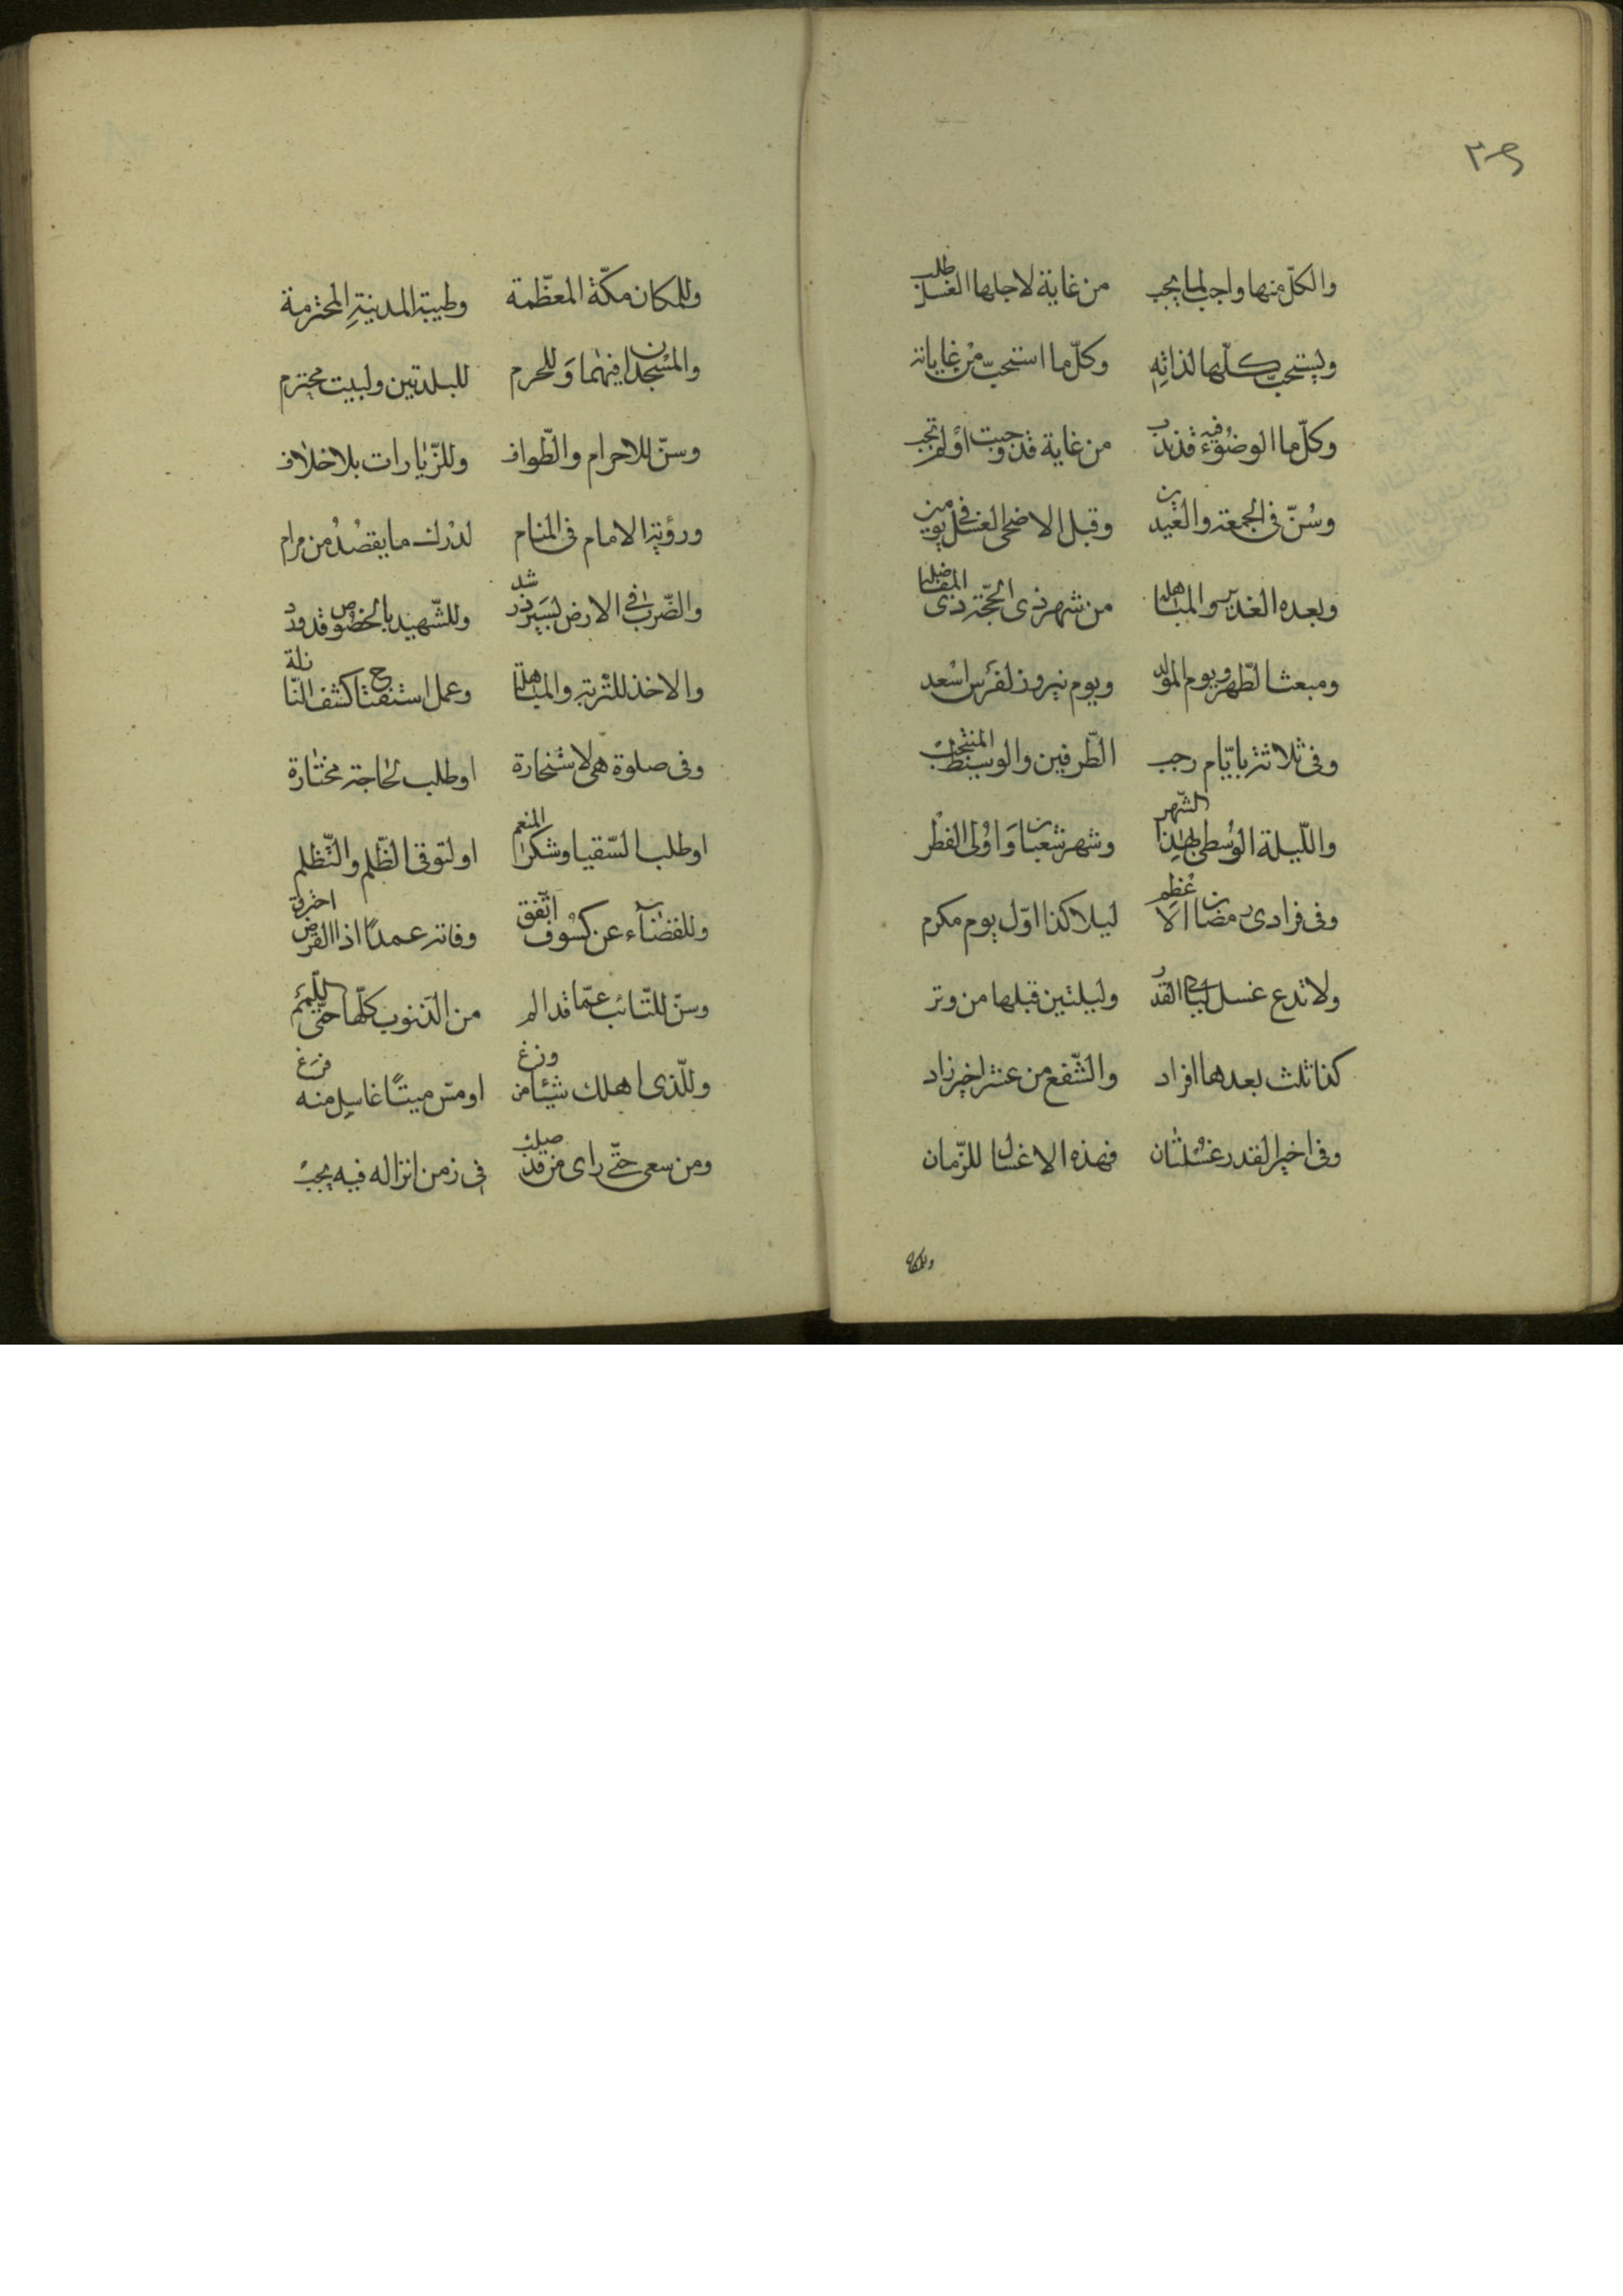 والكلّ منها واجب لما يجب من غاية لاجلها الغسل طلب
ويستحبّ كلّها لذاته وكلّ ما استحبّ من غاياته
وكلّ ما الوضوء فيه قد ندب من غاية قد وجبت أو لم تجب
وسُنّ فى الجمعة والعيدين وقبل الاضحى الغسل فى يومين
وبعده الغدير والمباهله من شهر ذى الحجّة ذى المفاضله
ومبعث الطّهر ويوم المولد ويوم نيروز لفرس اسعد
وفى ثلاثة بايّام رجب الطّرفين والوسيط المنتجب
واللّيلة الوُسطى بهذا الشّهر وشهر شعبان وَاوُلى الفطر
وفى فرادى رمضان الاعظم ليلا كذا اوّل يوم مكرم
ولا تدع غسل ليالى القدر وليلتين قبلها من وتر
كذا ثلث بعدها افراد والشّفع من عشر اخير زاد
وفى اخير القدر غسلتان فهذه الاغسال للزّمان
وللمكان
وللمكان مكّة المعظّمة وطيبة المدينةِ المحترمة
والمسْجدان فيهما وَللحرم للبلدتين ولبيت محترم
وسنّ للاحرام والطّواف وللزّيارات بلا خلاف
ورؤية الامام فى المنام لدرْك ما يقصُدُ من مرام
والضّرب فى الارض لسَير ذر شد وللشّهيد بالخصُوص قد ورد
والاخذ للتّربة والمباهلة وعمل استفتاح كشف النّازلة
وفى صلوة هى لاستخارة او طلب لحاجة مختارة
او طلب السّقيا وشكر المنعم او لتوقى الظّلم والتّظلم
وللقضاء عن كسُوف اتّفق وفاته عمدًا اذا القرص احترق
وسنّ للتّائب عمّا قد الم من الذّنوب كلّها حتّى اللّمم
وللّذى اهلك شيئا من وزغ او مسّ ميتًا غاسل منه فرغ
ومن سعى حتّى راى من قد صلب فى زمن انزاله فيه يجب